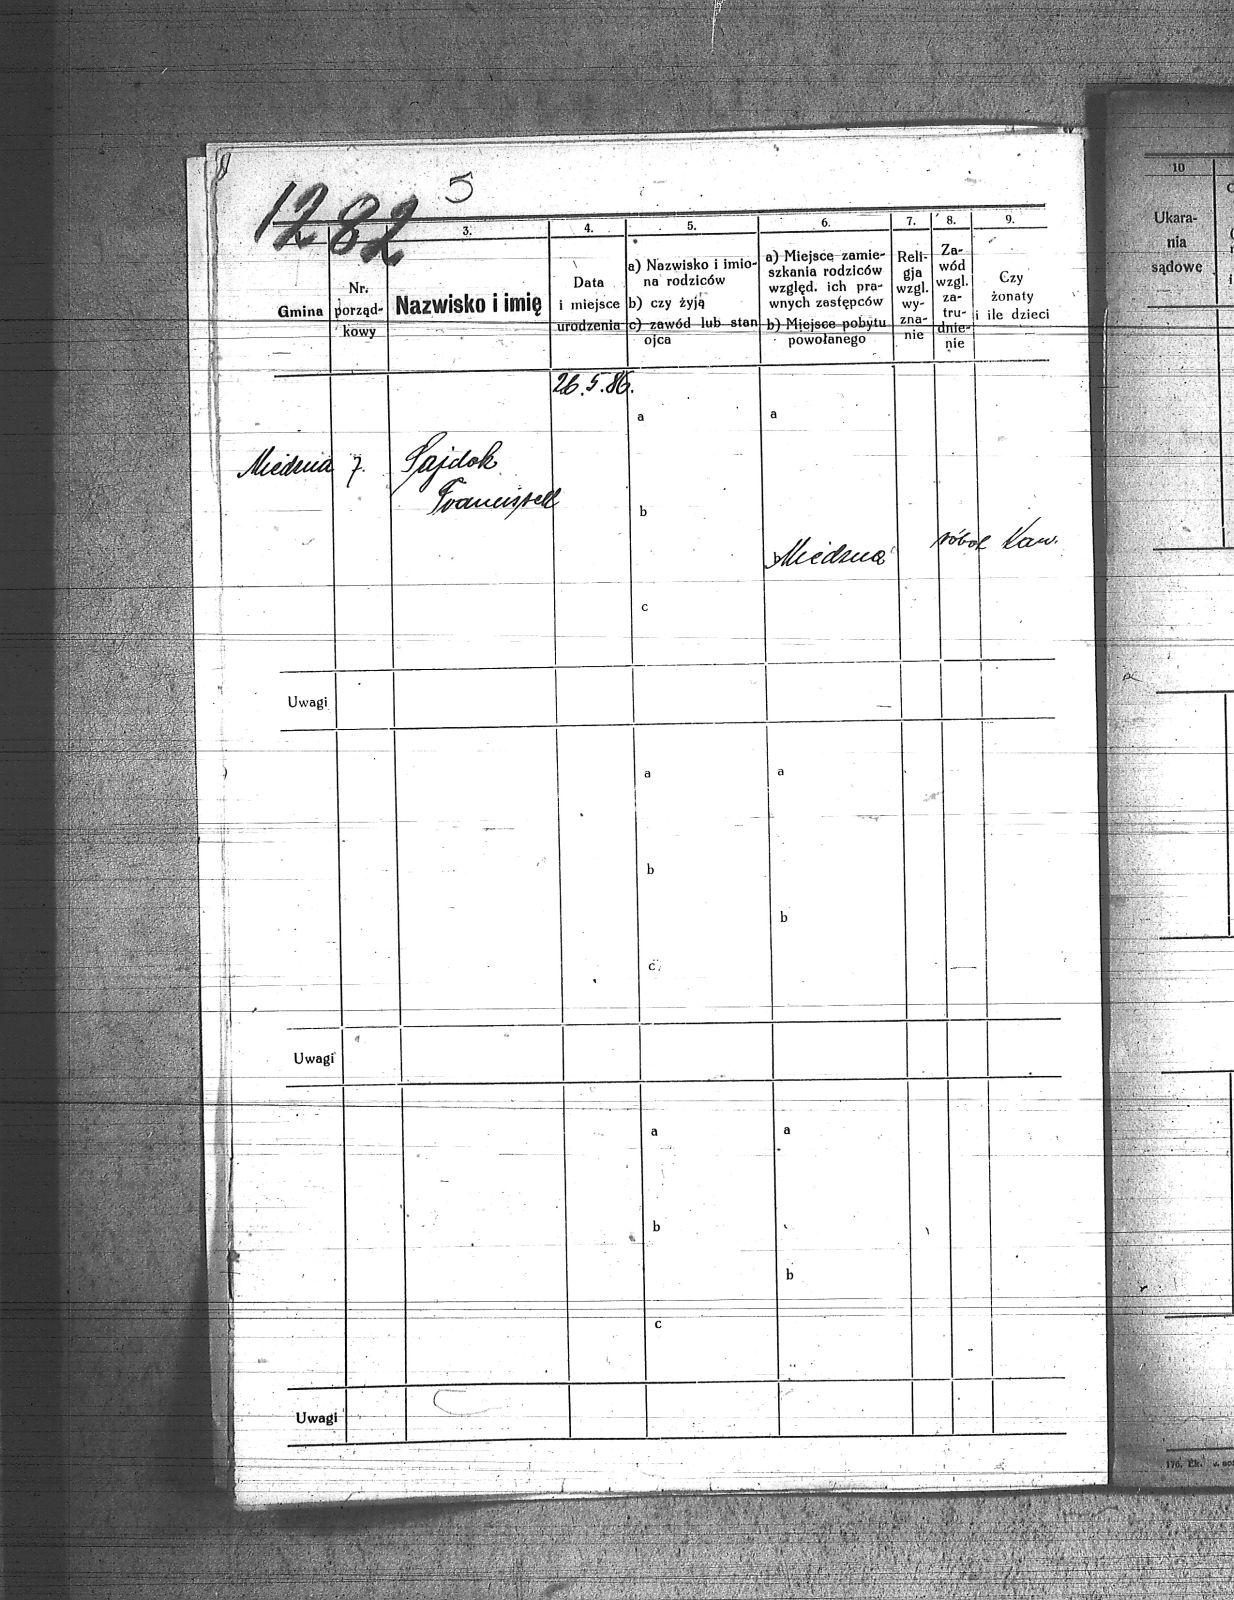 1282
5
3.
4.
5.
6.
7.
8.
9.
Gmina
Nr.
porząd-
kowy
Nazwisko i imię
Data
i miejsce
urodzenia
a) Nazwisko i imio-
na rodziców
b) czy żyją
c) zawód lub stan
ojca
a) Miejsce zamie-
szkania rodziców
wzgléd. ich pra-
wnych zastępców
b) Miejsce pobytu
powołanego
Reli-
gja
wzgl.
wy-
zna-
nie
Za-
wód
wzgl.
za-
tru-
dnie-
nie
Czy
żonaty
i ile dzieci
26.5.86.
a
a
Miedzna 7. Sajdok
Franciszek
b
Miedzna robot Kaw.
c
Uwagi
a
a
b
b
c
Uwagi
a
a
b
b
c
Uwagi
10
Ukara-
nia
sądowe
176. Ek.